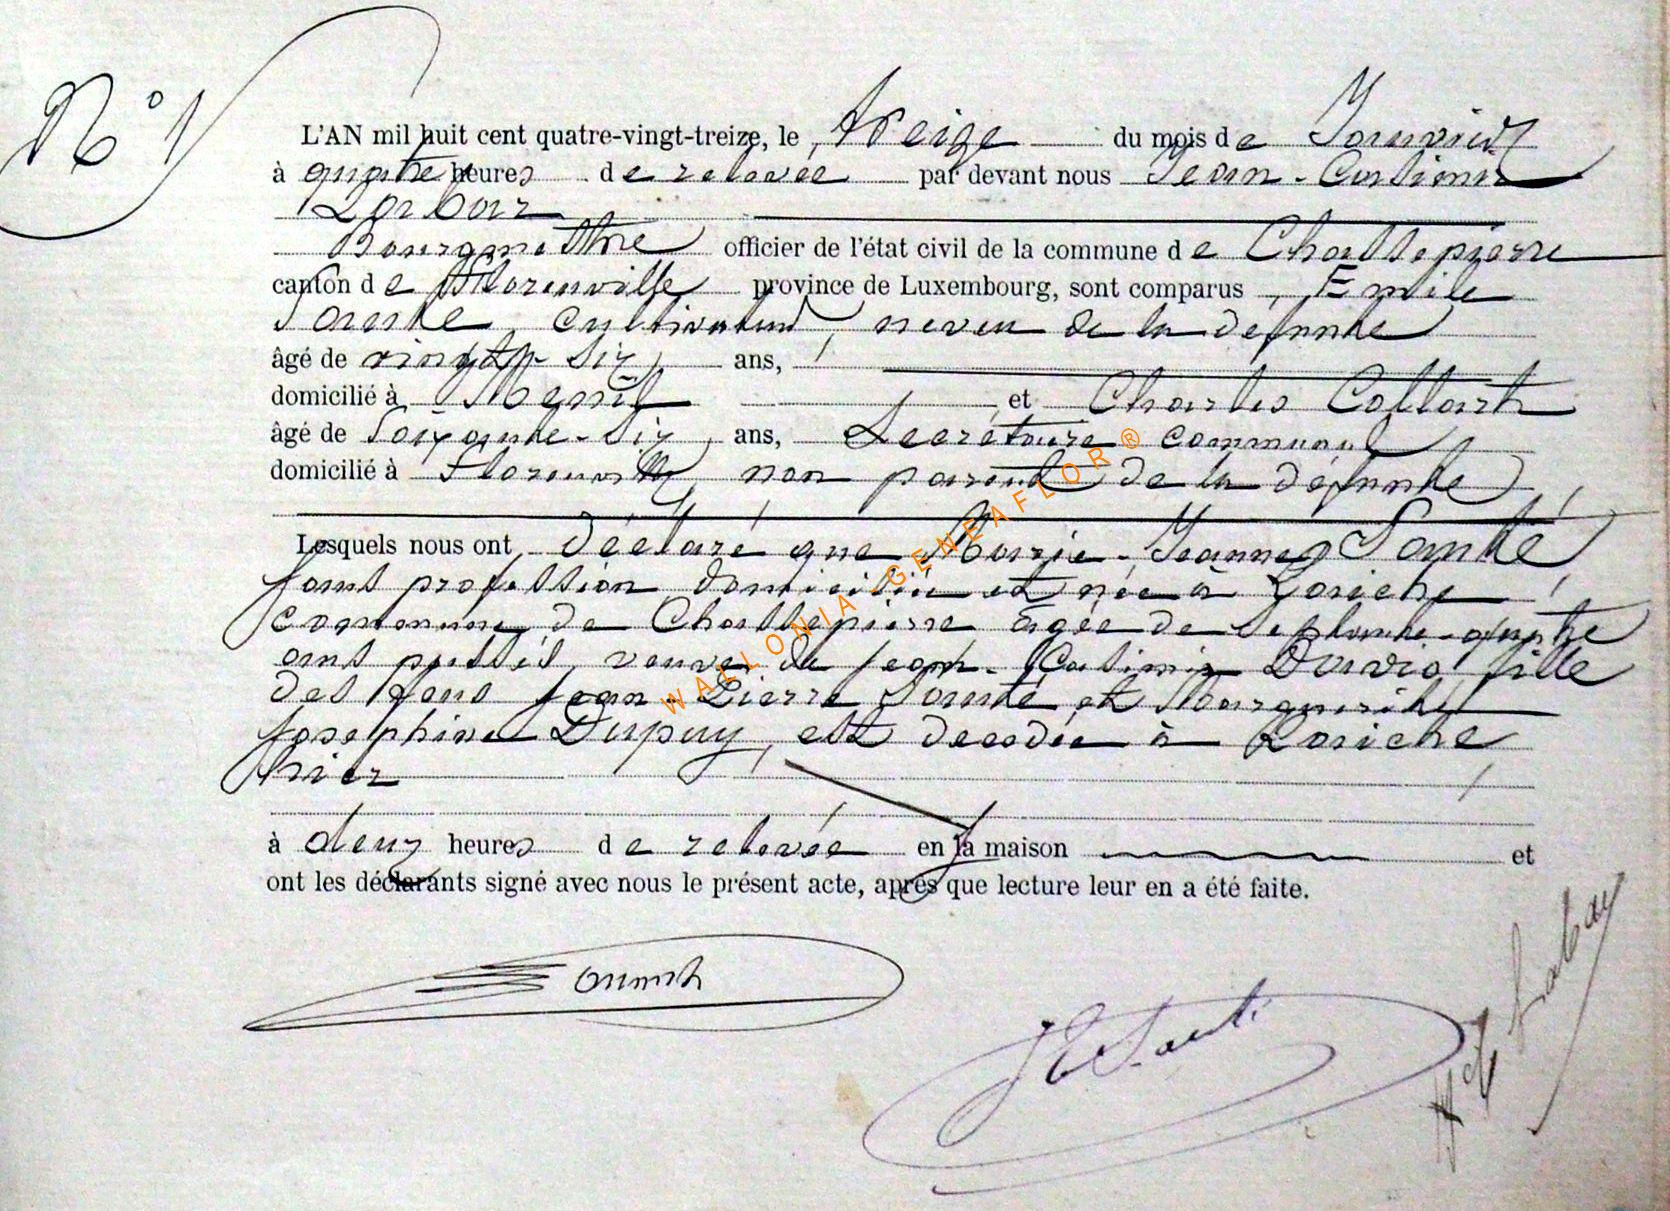 N° 1
L'AN mil huit cent quatre-vingt-treize, le treize du mois de Janvier
à quatre heures de relevée par devant nous Jean-Casimir
Labar
Bourgmestre officier de l'état civil de la commune de Chassepierre
canton de Florenville province de Luxembourg, sont comparus Emile
Santé, cultivateur, neveu de la défunte
âgé de vingt-six ans,
domicilié à Mesnil et Charles Collart
âgé de soixante-six, ans, Secrétaire communal
domicilié à Florenville, non parent de la défunte
Lesquels nous ont déclaré que Marie-Jeanne Santé
sans profession domiciliée et née à Laiche
commune de Chassepierre âgée de septante-quatre
ans passés, veuve de Jean-Casimir David, fille
des feus Jean-Pierre Santé et Marguerite
Josephine Dupuy, est décédée à Laiche
hier
à deux heures de relevée en sa maison et
ont les déclarants signé avec nous le présent acte, après que lecture leur en a été faite.
JE Santé
Labar
WALLONIA GENEAFLOR®